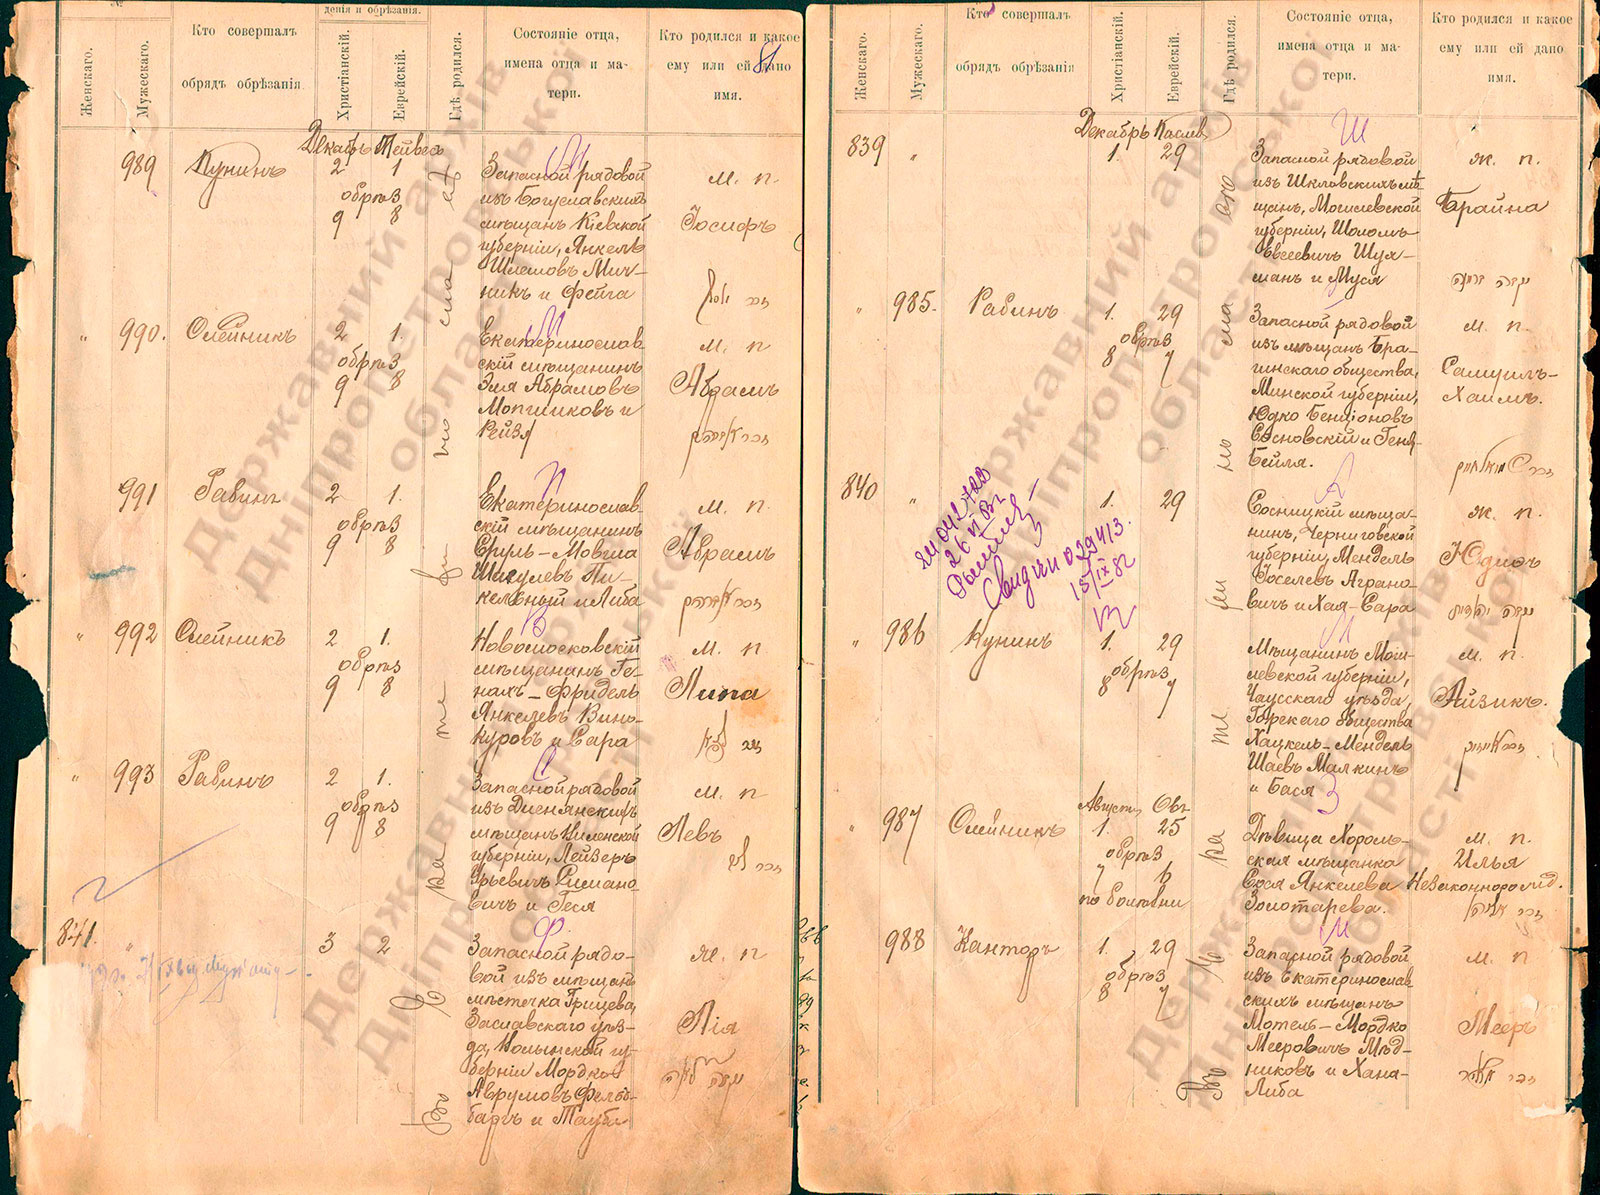 №
Женскаго.
Мужескаго.
Кто совершалъ
обрядъ обрѣзанія
денія и обрѣзанія.
Христіанскій.
Еврейскій.
Гдѣ родился.
Состояніе отца,
имена отца и ма-
тери.
Кто родился и какое
ему или ей дано
имя.
81
Декабрь Тейвесъ
989 Кунинъ 2 1.
обрѣз
9 8
Запасной рядовой
изъ Богуславскихъ
мѣщанъ Кіевской
губерніи, Янкель
Шлемовъ Мич-
никъ и Фейга
м. п.
Іосифъ
" 990. Олейникъ 2 1.
обрѣз
9 8
Екатеринослав
скій мѣщанинъ
Эля Абрамовъ
Мопшиковъ и
Рейзя
м. п
Абрамъ
991 Рабинъ 2 1.
обрѣз
9 8
Екатеринослав-
скій мѣщанинъ
Сруль-Мовша
Шмулевъ Пи-
кельный и Либа
м. п.
Абрамъ
" 992 Олейникъ 2 1.
обрѣз
9 8
Новомосковскій
мѣщанинъ Ге-
нахъ-Фридель
Янкелевъ Вино-
куровъ и Сара
м. п
Липа
" 993 Рабинъ 2 1.
обрѣз
9 8
Запасной рядовой
изъ Дисянскихъ
мѣщанъ Виленской
губерніи, Лейзеръ
Юрьевичъ Римано-
вичъ и Геся
м. п
Левъ
841. " 3 2
Запасной рядо-
вой изъ мѣщанъ
мѣстечка Грицева,
Заславскаго уѣз-
да, Волынской гу-
берніи Мордко
Аврумовъ Фельд-
баръ и Тауба
ж. п
Лія
Во Екатеринославѣ
Женскаго.
Мужескаго.
Кто совершалъ
обрядъ обрѣзанія
Христіанскій.
Еврейскій.
Гдѣ родился.
Состояніе отца,
имена отца и ма-
тери.
Кто родился и какое
ему или ей дано
имя.
Декабрь Кислев
839 " 1. 29
Запасной рядовой
изъ Шкловскихъ мѣ
щанъ, Могилевской
губерніи, Шоломъ
Евсеевичъ Шух-
манъ и Муся
ж. п.
Брайна
" 985. Рабинъ 1. 29
обрѣз
8 7
Запасной рядовой
изъ мѣщанъ Бра-
гинскаго общества,
Минской губерніи,
Юдко Бенціоновъ
Сосновскій и Геня-
Бейля.
м. п.
Самуилъ-
Хаимъ.
840 " 1. 29
Сосницкій мѣща-
нинъ, Черниговской
губерніи, Мендель
Іоселевъ Аграно-
вичъ и Хая-Сара
ж. п.
Юдиѳь
15/IX 82
" 986 Кунинъ 1. 29
обрѣз
8 7
Мѣщанинъ Моги-
левской губерніи,
Чаусскаго уѣзда,
Горскаго общества
Хацкель-Мендель
Шаевъ Малкинъ
и Бася
м. п.
Айзикъ.
Августъ Овъ
" 987 Олейникъ 1. 25
обрѣз
7 6
по болѣзни
Дѣвица Хороль-
ская мѣщанка
Сося Янкелева
Золотарева.
м. п.
Илья
Незаконнорожд.
988 Канторъ 1. 29
обрѣз
8 7
Запасной рядовой
изъ Екатеринослав
скихъ мѣщанъ
Мотель-Мордко
Мееровичъ Мѣд-
никовъ и Хана-
Либа
м. п
Мееръ
Державний архів
Дніпропетровської
області